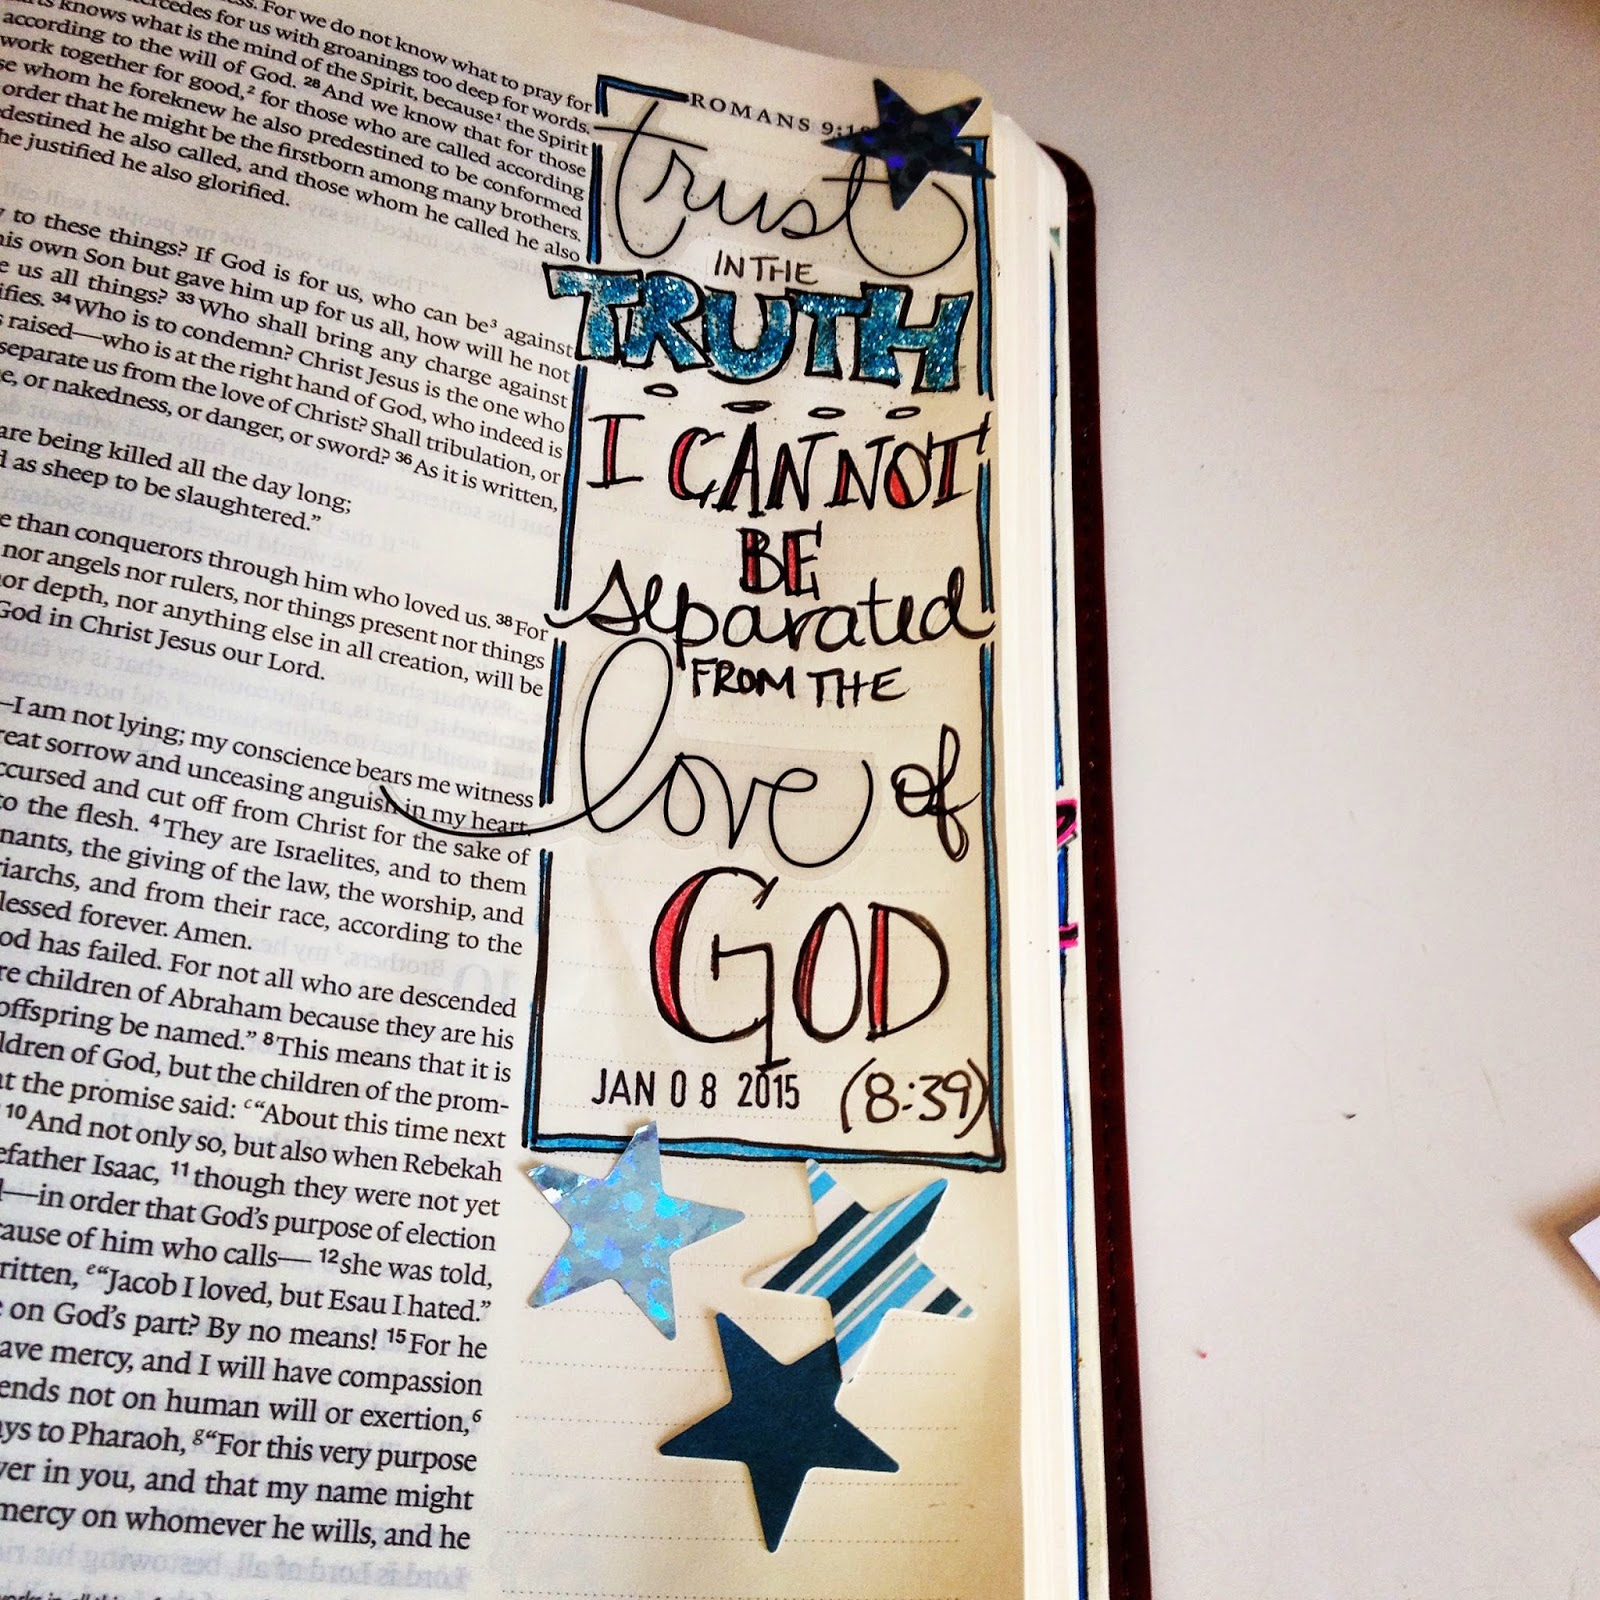 ess. For we do not know what to pray for
ercedes for us with groanings too deep for words.
rts knows what is the mind of the Spirit, because¹ the Spirit
according to the will of God. ²⁸ And we know that for those
work together for good,² for those who are called according
se whom he foreknew he also predestined to be conformed
order that he might be the firstborn among many brothers.
destined he also called, and those whom he called he also
he justified he also glorified.
to these things? If God is for us, who can be³ against
his own Son but gave him up for us all, how will he not
e us all things? ³³ Who shall bring any charge against
ifies. ³⁴ Who is to condemn? Christ Jesus is the one who
s raised—who is at the right hand of God, who indeed is
separate us from the love of Christ? Shall tribulation, or
e, or nakedness, or danger, or sword? ³⁶ As it is written,
are being killed all the day long;
d as sheep to be slaughtered.”
re than conquerors through him who loved us. ³⁸ For
nor angels nor rulers, nor things present nor things
nor depth, nor anything else in all creation, will be
God in Christ Jesus our Lord.
—I am not lying; my conscience bears me witness
reat sorrow and unceasing anguish in my heart.
ccursed and cut off from Christ for the sake of
to the flesh. ⁴ They are Israelites, and to them
nants, the giving of the law, the worship, and
riarchs, and from their race, according to the
lessed forever. Amen.
od has failed. For not all who are descended
re children of Abraham because they are his
offspring be named.” ⁸ This means that it is
ldren of God, but the children of the prom-
at the promise said: ᶜ“About this time next
¹⁰ And not only so, but also when Rebekah
efather Isaac, ¹¹ though they were not yet
d—in order that God’s purpose of election
cause of him who calls— ¹² she was told,
ritten, ᵉ“Jacob I loved, but Esau I hated.”
e on God’s part? By no means! ¹⁵ For he
ave mercy, and I will have compassion
ends not on human will or exertion,⁶
ays to Pharaoh, ᵍ“For this very purpose
wer in you, and that my name might
mercy on whomever he wills, and he
ROMANS 9:1
trust
IN THE
TRUTH
I CANNOT
BE
separated
FROM THE
love of
GOD
JAN 08 2015 (8:39)